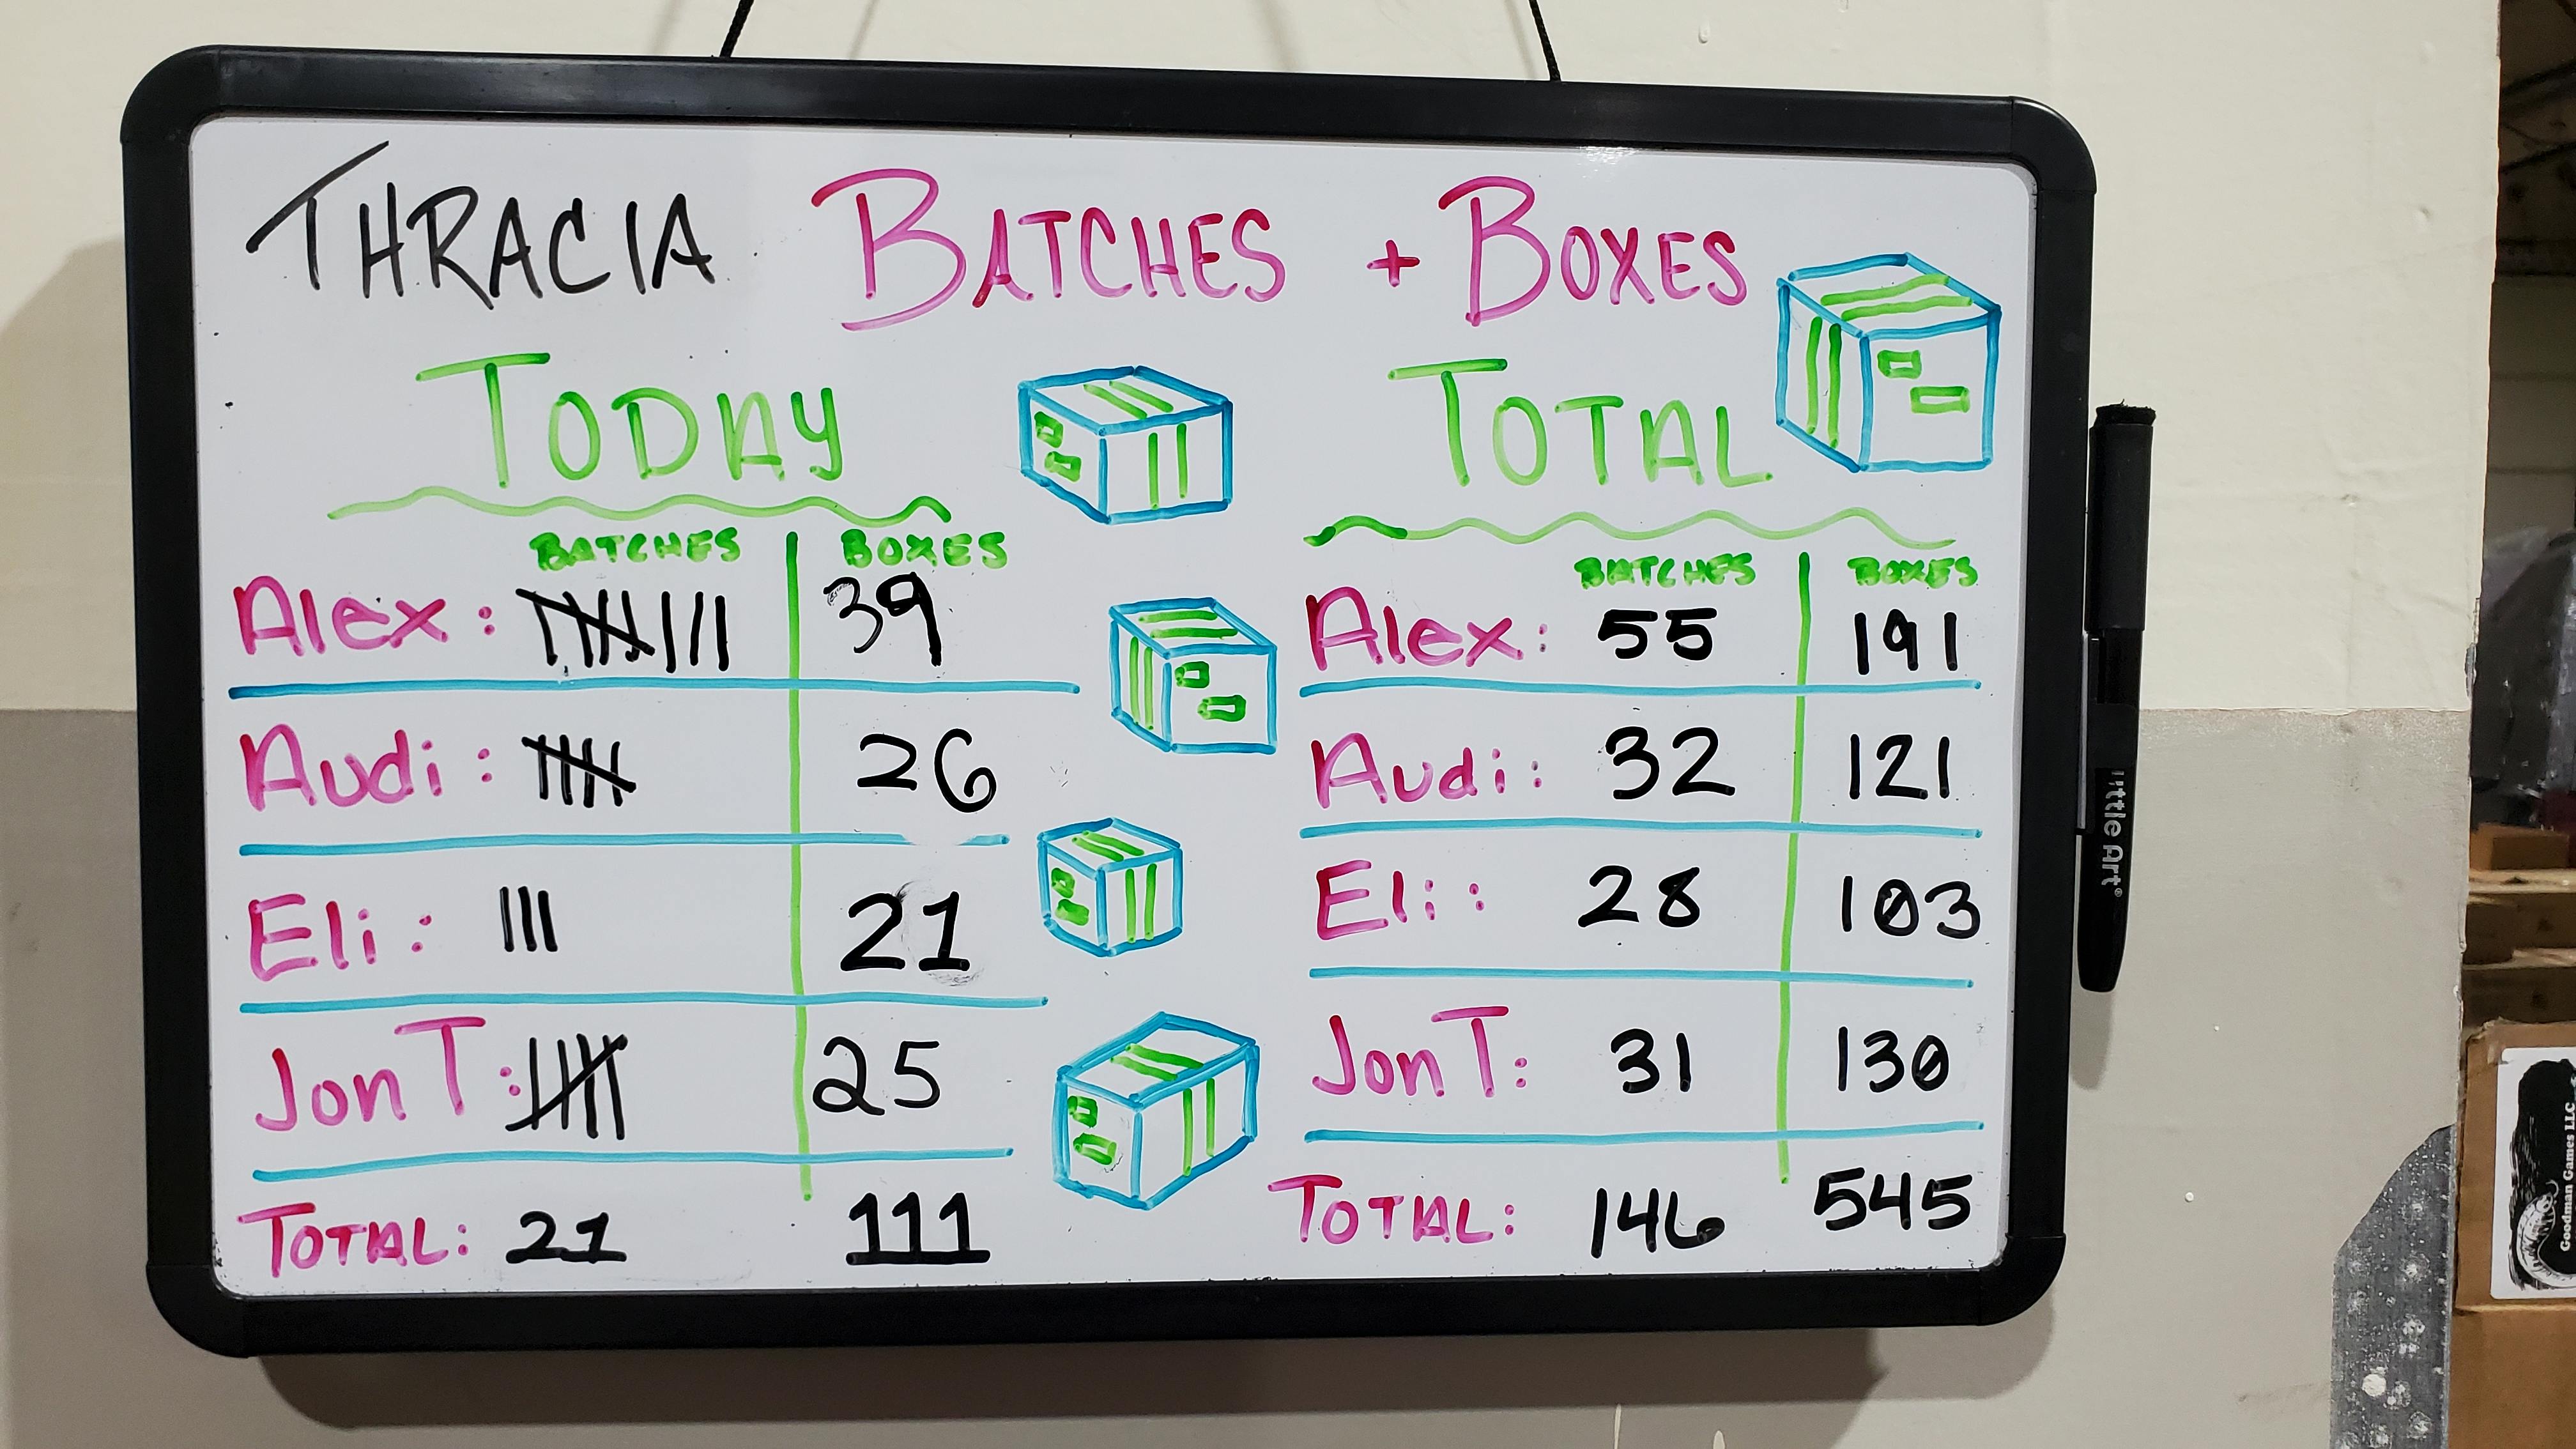 THRACIA BATCHES + BOXES
TODAY
BATCHES BOXES
Alex: 39
Audi: 26
Eli: 21
Jon T: 25
TOTAL: 21 111
TOTAL
BATCHES BOXES
Alex: 55 191
Audi: 32 121
Eli: 28 103
Jon T: 31 130
TOTAL: 146 545
Little Art®
Goodman Games LLC